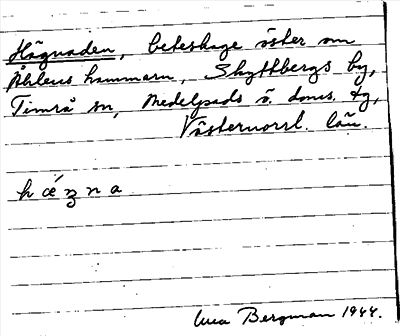 Hägnaden, beteshage öster om
hammarn, Skyttbergs by,
Timrå sn, Medelpads ö. doms. tg,
Västernorrl. län.
h æ´ ʒ n a
Bergman 1944.